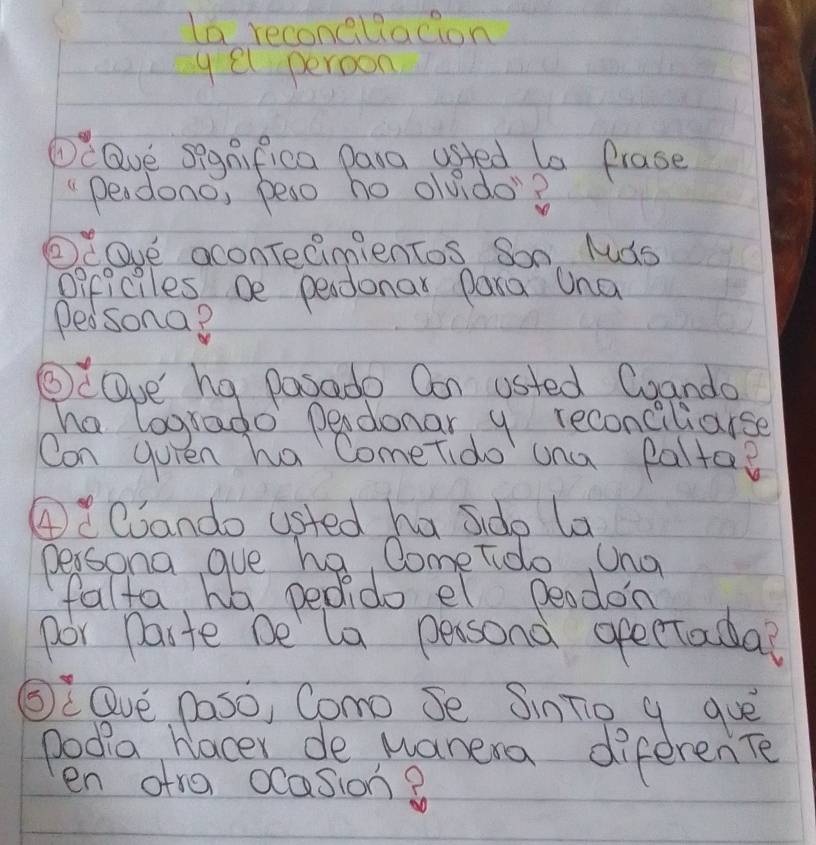 la reconciliacion
y el perdon
① ¿Qué significa para usted la frase
"perdono, pero no olvido"?
② ¿Qué aconTecimienTos son Más
Dificiles De perdonar para Una
persona?
③ ¿Qué ha pasado Con usted Cuando
ha logrado perdonar y reconciliarse
Con quien ha ComeTido una falta?
④ ¿Cuando usted ha sido la
persona que ha ComeTido Una
falta ha pedido el perdón
por parte De la persona afecTada?
⑤ ¿Qué pasó, Como se SinTio y qué
podia hacer de Manera diferenTe
en otra ocasión?